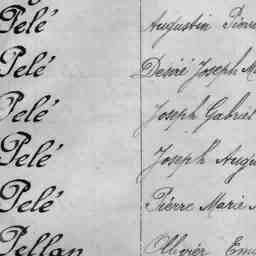 Pelé Augustin Pierre
Pelé Désiré Joseph M
Pelé Joseph Gabriel
Pelé Joseph Augu
Pelé Pierre Marie
Pellan Ollivier Emi